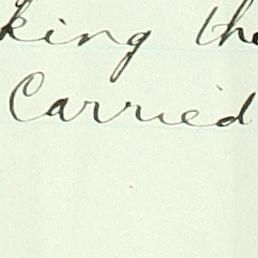 king the
Carried